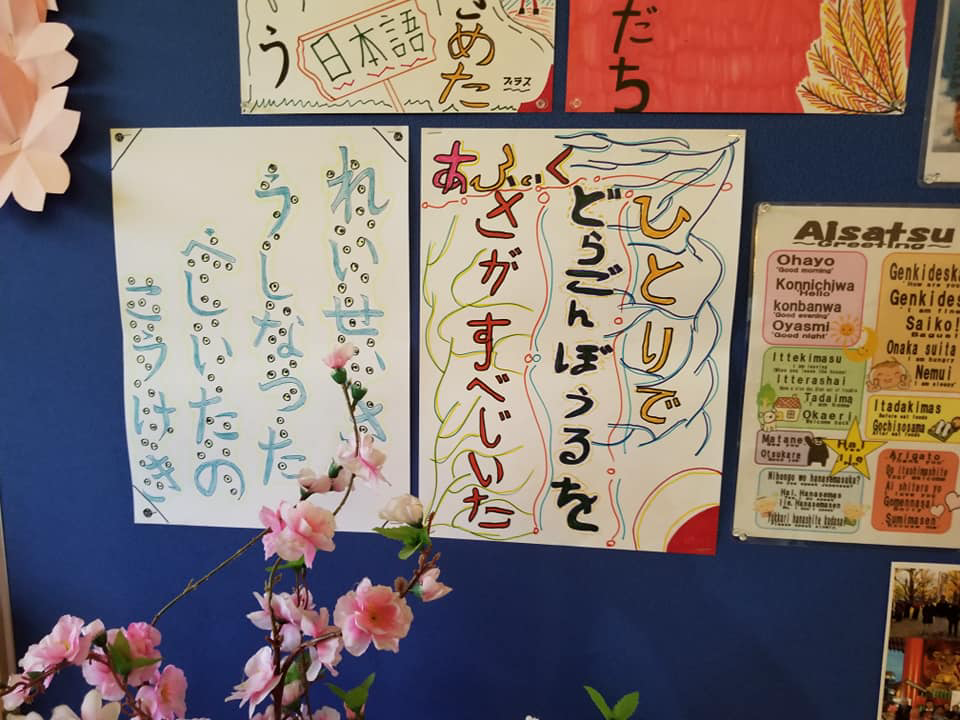 う
日本語
めた
だち
れいせい
うしなった
べしいたの
こうけき
ひとりで
どらごんぼうるを
さがすべじいた
あふぃく
Aisatsu
~Greeting~
Ohayo
"Good morning"
Konnichiwa
"Hello
konbanwa
"Good evening"
Oyasmi
"Good night"
Ittekimasu
I am leaving
Itterashai
Tadaima
I am home
Okaeri
Welcome back
Matane
Otsukare
Hai
Iie
Genkideska
How are you
Genkides
I am fin
Saiko!
Onaka suita
Nemui
I am sleepy
Itadakimas
Before eat foods
Gochisosama
After eat foods
Arigato
Do itashimashite
Ai shiteru yo
I love you
Gomennasai
Sumimasen
Nihongo wo hanasemasuka?
Hai. Hanasemas
Iie. Hanasemasen
Yukkuri hanashite kudasai